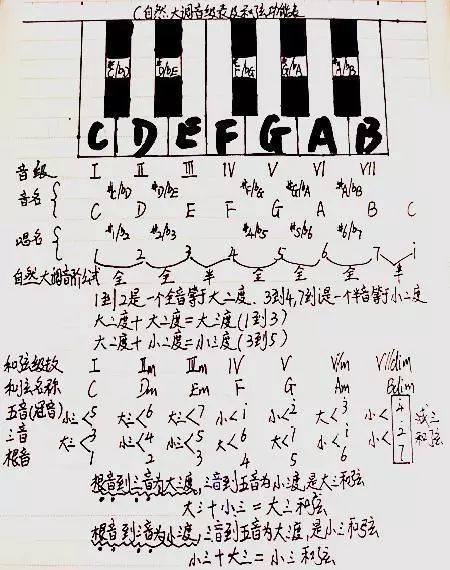 C自然大调音级表及和弦功能表
#C/bD #D/bE #F/bG #G/bA #A/bB
C D E F G A B
音级 I II III IV V VI VII
#C/bD #D/bE #F/bG #G/bA #A/bB
音名 { C D E F G A B C
#1/b2 #2/b3 #4/b5 #5/b6 #6/b7
唱名 { 1 2 3 4 5 6 7 i
自然大调音阶公式 全 全 半 全 全 全 半
1到2是一个全音等于大二度、3到4,7到i是一个半音等于小二度
大二度+大二度=大三度(1到3)
大二度+小二度=小三度(3到5)
和弦级数 I IIm IIIm IV V VIm VIIdim
和弦名称 C Dm Em F G Am Bdim
五音(冠音) 小三<5 大三<6 大三<7 小<i 小<2 大<3 小<4 减三
三音 大三<3 小三<4 小三<5 大<6 大<7 小<i 小<2 和弦
根音 1 2 3 4 5 6 7
根音到三音为大三度,三音到五音为小三度,是大三和弦
大三+小三=大三和弦
根音到三音为小三度,三音到五音为大三度,是小三和弦
小三+大三=小三和弦